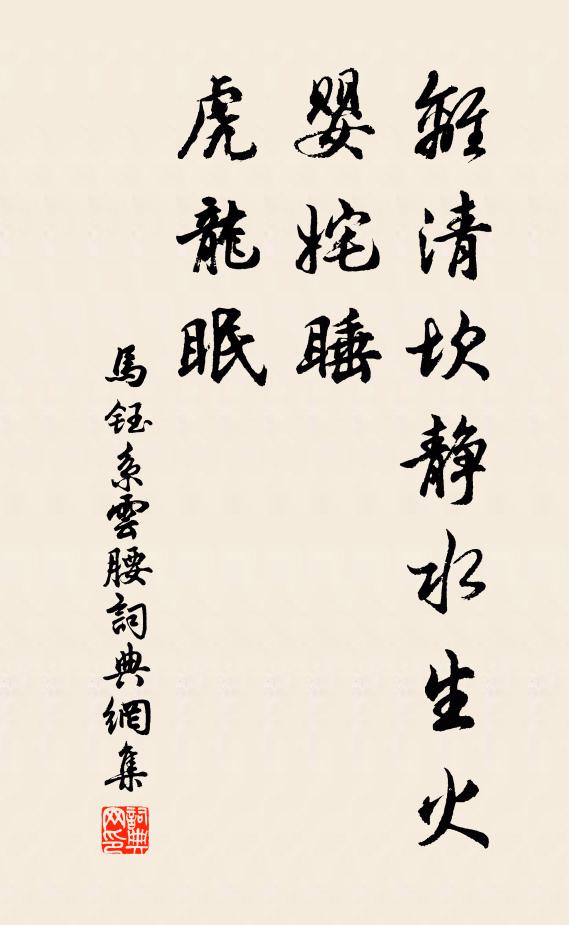 離清坎静水生火
嬰姹睡
虎龍眠
馬鈺系雲腰詞典網集
詞典网印